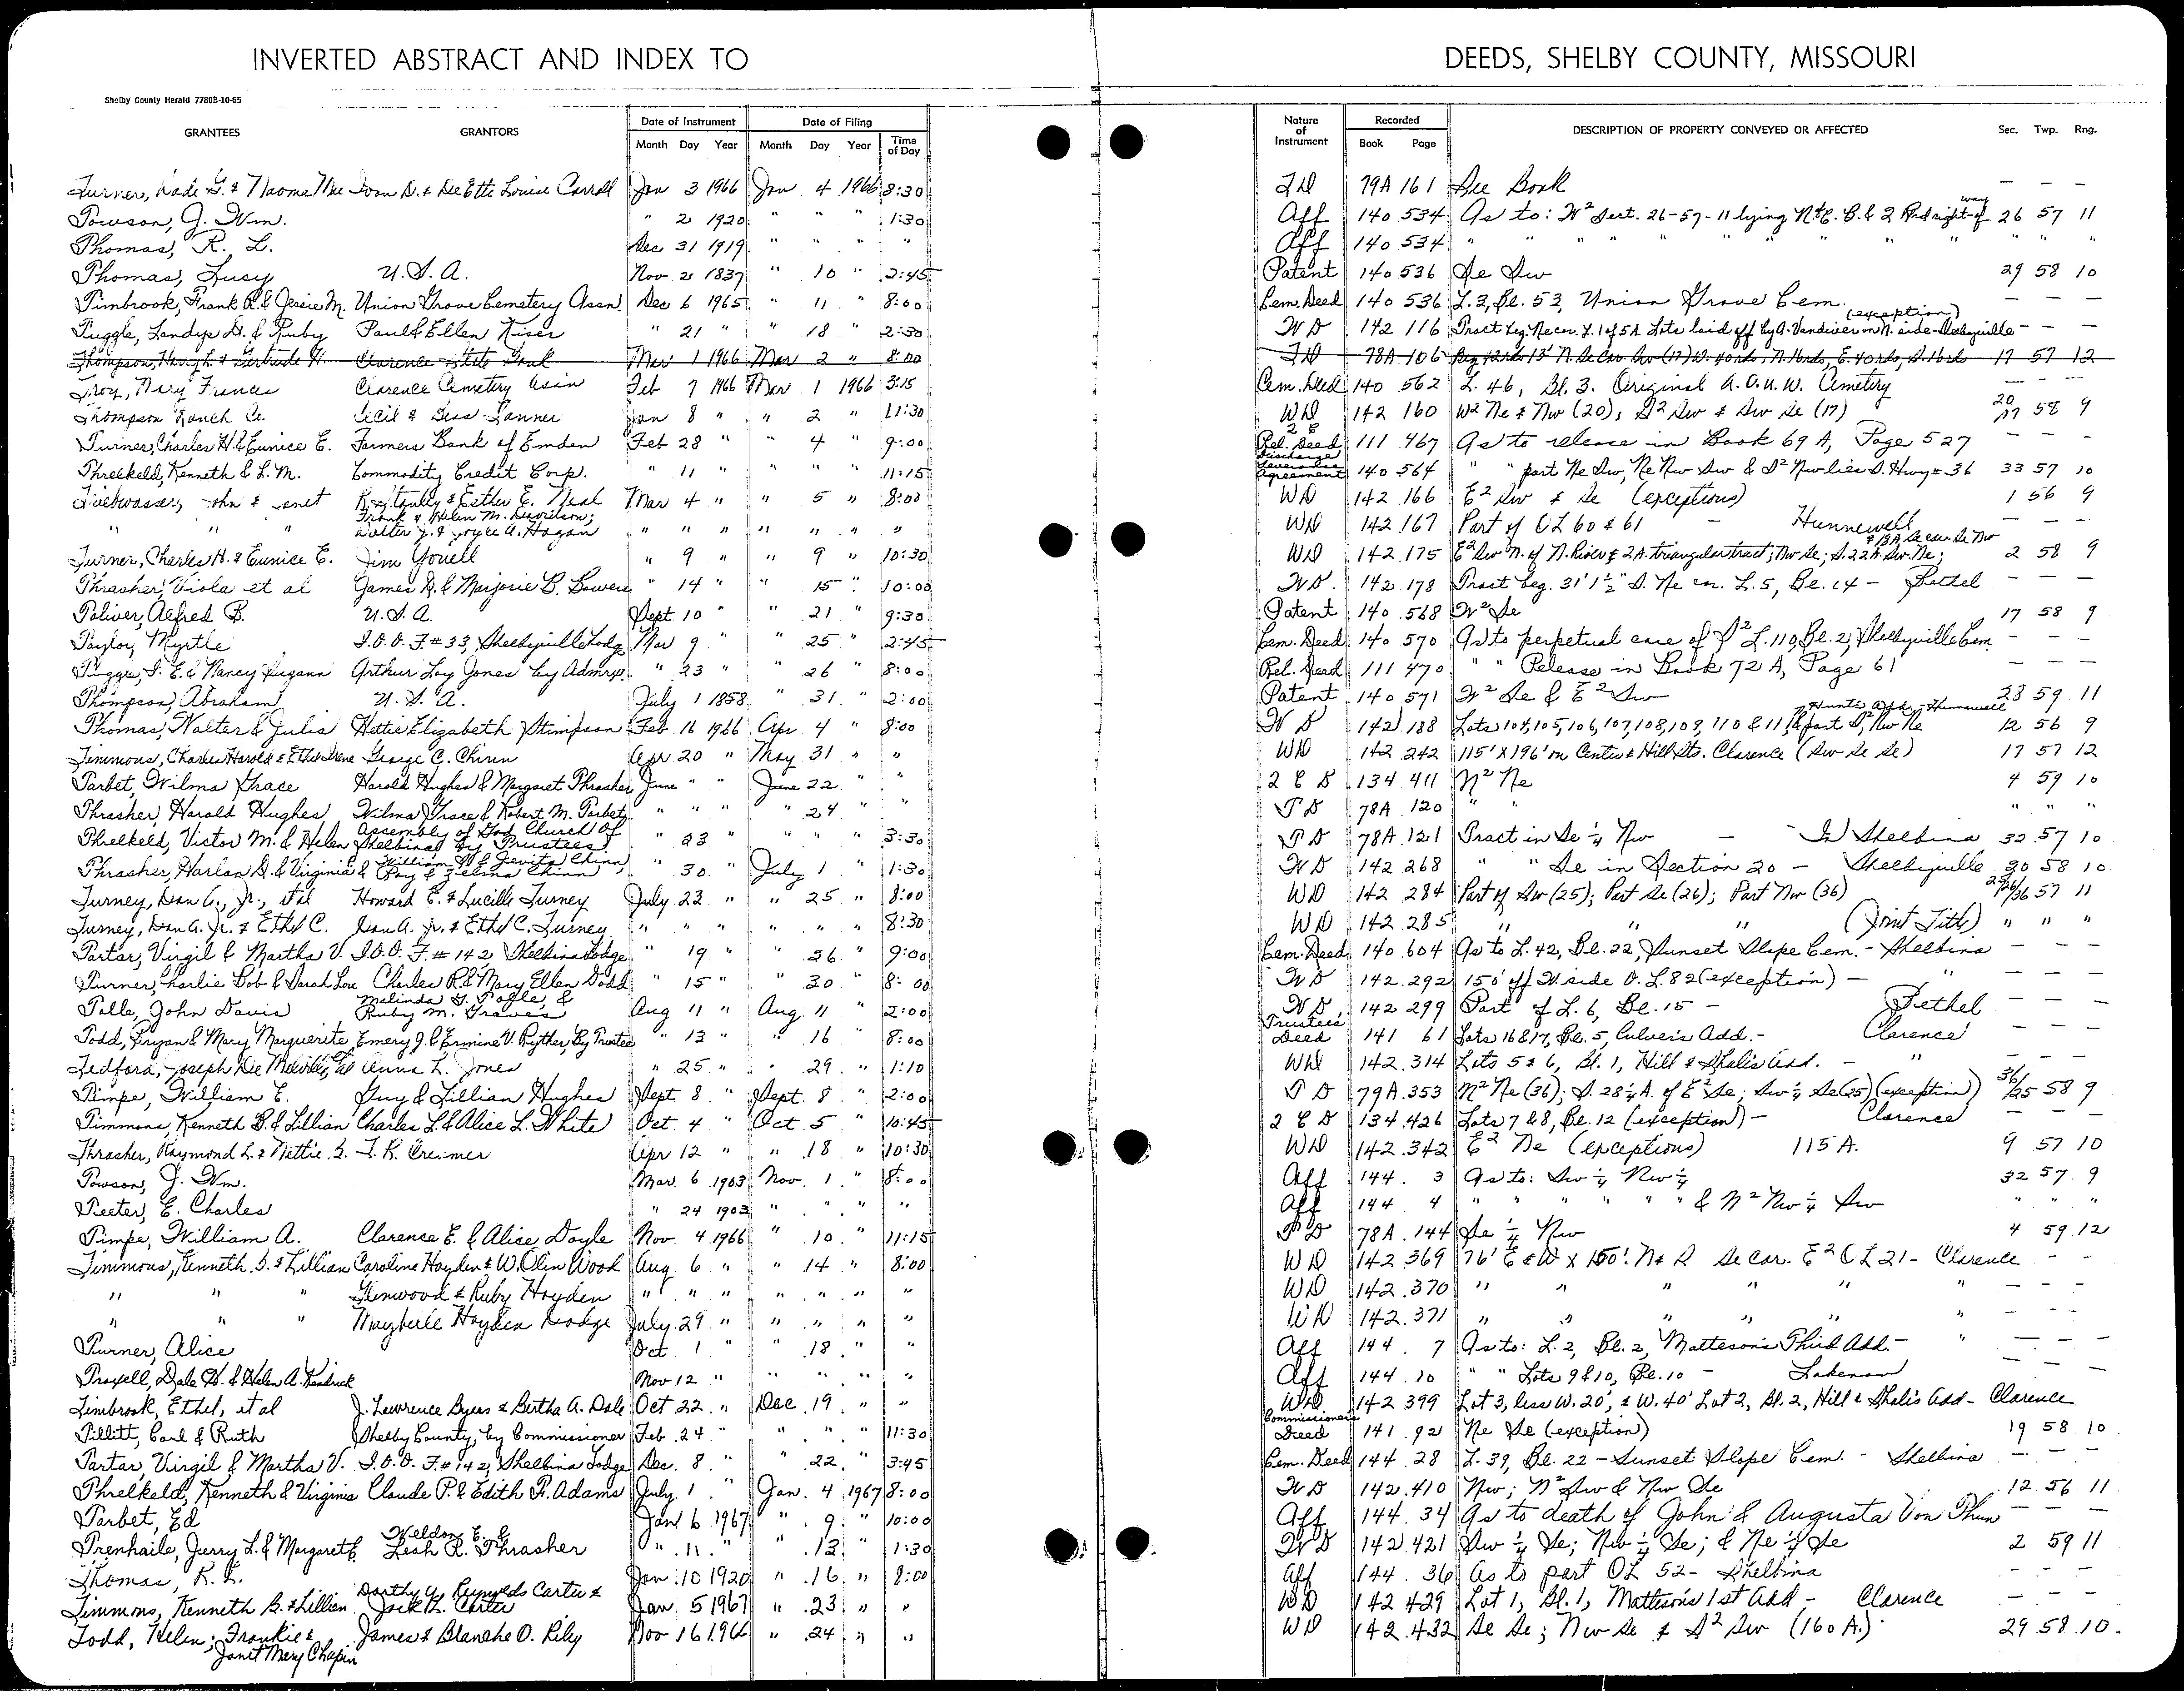 INVERTED ABSTRACT AND INDEX TO DEEDS, SHELBY COUNTY, MISSOURI
Shelby County Herald 7780B-10-65
GRANTEES GRANTORS Date of Instrument Date of Filing Nature of Instrument Recorded DESCRIPTION OF PROPERTY CONVEYED OR AFFECTED Sec. Twp. Rng.
Month Day Year Month Day Year Time of Day Book Page
Turner, Wade G. & Naoma Mae Ivan D. & DeEtte Louise Carroll Jan 3 1966 Jan 4 1966 8:30 TD 79A 161 See Book — — —
Towson, J. Wm. " 2 1920 " " " 1:30 Aff 140 534 As to: W² Sect. 26-57-11 lying N. & C. B. & Q Rrd right-of way 26 57 11
Thomas, R. L. Dec 31 1919 " " " " Aff 140 534 " " " " " " " " " " "
Thomas, Lucy U.S.A. Nov 21 1837 " 10 " 2:45 Patent 140 536 Se Sw 29 58 10
Timbrook, Frank R. & Jessie M. Union Grove Cemetery Assn. Dec 6 1965 " 11 " 8:00 Cem. Deed 140 536 L. 3, Bl. 53, Union Grove Cem. — — —
Tuggle, Landye H. & Ruby Paul & Ellen Kiser " 21 " " 18 " 2:30 WD 142 116 Tract beg. Ne cor. L. 1 of 5A. Lots laid off by A. Vandiver on N. side - Shelbyville (exception) — — —
Thompson, Hugh & Gertrude H. Clarence State Bank Mar 1 1966 Mar 2 " 8:00 TD 78A 106 Beg 42 rds 13' N. Se Cor. Sw (17) W. 40 rds, N. 16 rds, E. 40 rds, S. 16 rds 17 57 12
Troy, Mary Frances Clarence Cemetery Assn Feb 7 1966 Mar 1 1966 3:15 Cem. Deed 140 562 L. 46, Bl. 3. Original A.O.U.W. Cemetery — — —
Thompson Ranch Co. Cecil & Bess Lanner Jan 8 " " 2 " 11:30 WD 142 160 W² Ne & Nw (20); S² Sw & Sw Se (17) 20/17 58 9
Turner, Charles H. & Eunice E. Farmers Bank of Emden Feb 28 " " 4 " 9:00 Rel. Deed 111 467 As to release in Book 69 A, Page 527 — — —
Threlkeld, Kenneth & L. M. Commodity Credit Corp. " 11 " " " " 11:15 Discharge Agreement 140 564 " " part Ne Sw, Ne Nw Sw & S² Nw lies S. Hwy # 36 33 57 10
& Esther E. Neal Mar 4 " " 5 " 8:00 WD 142 166 E² Sw & Se (exceptions) 1 56 9
" " " Frank & Helen M. Davidson; Walter J. & Joyce A. Hagan " " " " " " " WD 142 167 Part of OL 60 & 61 — Hunnewell — — —
Turner, Charles H. & Eunice E. Jim Youell " 9 " " 9 " 10:30 WD 142 175 E² Sw N. of N. River & 2A. triangular tract; Nw Se; S. 22A. Sw. Ne; & 13A. Se cor. Se Nw 2 58 9
Thrasher, Viola et al James D. & Marjorie B. Bowers " 14 " " 15 " 10:00 WD. 142 178 Tract beg. 31' 1½" S. Ne cor. L. 5, Bl. 14 — Bethel — — —
Toliver, Alfred B. U.S.A. Sept 10 " " 21 " 9:30 Patent 140 568 W² Se 17 58 9
Taylor, Myrtle I.O.O.F. # 33, Shelbyville Lodge Mar 9 " " 25 " 2:45 Cem. Deed 140 570 As to perpetual care of S² L. 110, Bl. 2, Shelbyville Cem — — —
Tuggle, I. E. & Nancy Arthur Loy Jones by Admrx. " 23 " " 26 " 8:00 Rel. Deed 111 470 " " Release in Book 72 A, Page 61 — — —
Thompson, Abraham U.S.A. July 1 1858 " 31 " 2:00 Patent 140 571 W² Se & E² Sw 28 59 11
Thomas, Walter & Julia Hettie Elizabeth Stimpson Feb 16 1966 Apr 4 " 8:00 WD 142 188 Lots 104, 105, 106, 107, 108, 109, 110 & 111, & part S² Nw Ne Hunts Add. - Hunnewell 12 56 9
Timmons, Charles Harold & Ethel Irene George C. Chinn Apr 20 " May 31 " " WD 142 242 115' X 196' on Center & Hill Sts. Clarence (Sw Se Se) 17 57 12
Tarbet, Wilma Grace Harold Hughes & Margaret Thrasher June " " June 22 " " 2 C D 134 411 N² Ne 4 59 10
Thrasher, Harold Hughes Wilma Grace & Robert M. Tarbet " " " " 24 " " TD 78A 120 " " " " "
Threlkeld, Victor M. & Helen Assembly of God Church of Shelbina, by Trustees " 23 " " " " 3:30 TD 78A 121 Tract in Se ¼ Nw — In Shelbina 32 57 10
Thrasher, Harlan D. & Virginia William H. & Jevita Chinn & Roy & Zelma Chinn " 30 " July 1 " 1:30 WD 142 268 " " Se in Section 20 — Shelbyville 20 58 10
Turney, Dan A., Jr., et al Howard E. & Lucille Turney July 22 " " 25 " 8:00 WD 142 284 Part of Sw (25); Part Se (26); Part Nw (36) 25/26/36 57 11
Turney, Dan A. Jr. & Ethel C. Dan A. Jr. & Ethel C. Turney " " " " " " 8:30 WD 142 285 " " " (Joint Title) " " "
Tartar, Virgil & Martha V. I.O.O.F. # 142, Shelbina Lodge " 19 " " 26 " 9:00 Cem. Deed 140 604 As to L. 42, Bl. 22, Sunset Slope Cem. — Shelbina — — —
Turner, Charlie Bob & Sarah Lou Charles R. & Mary Ellen Dodd " 15 " " 30 " 8:00 WD 142 292 150' off W side O. L. 82 (exception) — " — — —
Tolle, John Davis Malinda G. Tolle, & Ruby M. Graves Aug 11 " Aug 11 " 2:00 WD 142 299 Part of L. 6, Bl. 15 — Bethel — — —
Todd, Bryan & Mary Marguerite Emery J. & Ermine V. Ryther, By Trustee " 13 " " 16 " 8:00 Trustees Deed 141 61 Lots 16 & 17, Bl. 5, Culver's Add. — Clarence — — —
Tedford, Joseph Anna L. Jones " 25 " " 29 " 1:10 WD 142 314 Lots 5 & 6, Bl. 1, Hill & Shale's Add. — " — — —
Timpe, William E. Guy & Lillian Hughes Sept 8 " Sept. 8 " 2:00 TD 79A 353 N² Ne (36); S. 28¼ A. of E² Se; Sw ¼ Se (25) (exception) 36/25 58 9
Timmons, Kenneth B. & Lillian Charles L. & Alice L. White Oct. 4 " Oct. 5 " 10:45 2 C D 134 426 Lots 7 & 8, Bl. 12 (exception) — Clarence — — —
Thrasher, Raymond L. & Nettie B. T. R. Creamer Apr 12 " " 18 " 10:30 WD 142 342 E² Ne (exceptions) 115 A. 9 57 10
Towson, J. Wm. Mar. 6 1903 Nov. 1 " 8:00 Aff 144 3 As to: Sw ¼ Nw ¼ 32 57 9
Teeter, E. Charles " 24 1903 " " " " Aff 144 4 " " " " " & N² Nw ¼ Sw " " "
Timpe, William A. Clarence E. & Alice Doyle Nov 4 1966 " 10 " 11:15 TD 78A 144 Se ¼ Nw 4 59 12
Timmons, Kenneth B. & Lillian Caroline Hayden & W. Olin Wood Aug. 6 " " 14 " 8:00 WD 142 369 76' E & W x 150' N & S Se cor. E² OL 21 - Clarence — —
" " " Glenwood & Ruby Hayden " " " " " " " WD 142 370 " " " " " " — — —
" " " Mayberle Hayden Dodge July 29 " " " " " WD 142 371 " " " " " " — — —
Turner, Alice Oct 1 " " 18 " " Aff 144 7 As to: L. 2, Bl. 2, Matteson's Third Add. — " — — —
Troxell, Dale W. & Helen A. Kendrick Nov 12 " " " " " Aff 144 10 " " Lots 9 & 10, Bl. 10 — Lakenan — — —
Timbrook, Ethel, et al J. Lawrence Byers & Bertha A. Dale Oct 22 " Dec 19 " " WD 142 399 Lot 3, less W. 20', & W. 40' Lot 2, Bl. 2, Hill & Shale's Add - Clarence
Tillitt, Carl & Ruth Shelby County, by Commissioner Feb 24 " " " " 11:30 Commissioners Deed 141 92 Ne Se (exception) 19 58 10
Tartar, Virgil & Martha V. I.O.O.F. # 142, Shelbina Lodge Dec. 8 " " 22 " 3:45 Cem. Deed 144 28 L. 39, Bl. 22 — Sunset Slope Cem. - Shelbina — — —
Threlkeld, Kenneth & Virginia Claude P. & Edith F. Adams July 1 " Jan. 4 1967 8:00 WD 142 410 Nw; N² Sw & Nw Se 12 56 11
Tarbet, Ed Jan 6 1967 " 9 " 10:00 Aff 144 34 As to death of John & Augusta Von Thun — —
Trenhaile, Jerry L. & Margaret Weldon E. & Leah R. Thrasher " 11 " " 12 " 1:30 WD 142 421 Sw ¼ Se; Nw ¼ Se; & Ne ¼ Se 2 59 11
Thomas, R. L. Jan 10 1920 " 16 " 8:00 Aff 144 36 As to part OL 52 - Shelbina — — —
Timmons, Kenneth B. & Lillian Dorthy Y. Reynolds Carter & Jack L. Carter Jan 5 1967 " 23 " " WD 142 429 Lot 1, Bl. 1, Matteson's 1st Add — Clarence — — —
Todd, Helen; Frankie & Janet Mary Chapin James & Blanche O. Riley Nov 16 1966 " 24 " " WD 142 432 Se Se; Nw Se & S² Sw (160 A.) 29 58 10